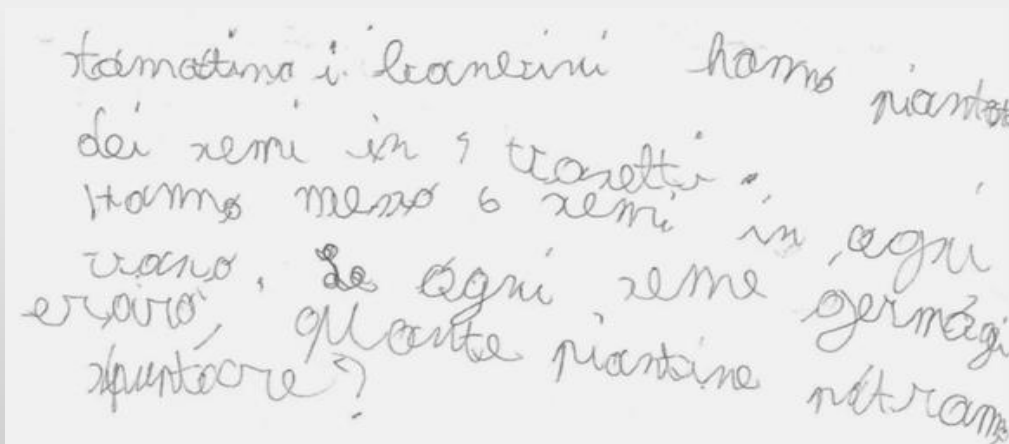 stamattina i bambini hanno piantato
dei semi in vasetti.
Hanno messo 6 semi in ogni
vaso. Se ogni seme germogli
erarò, quante piantine potranno
spuntare?